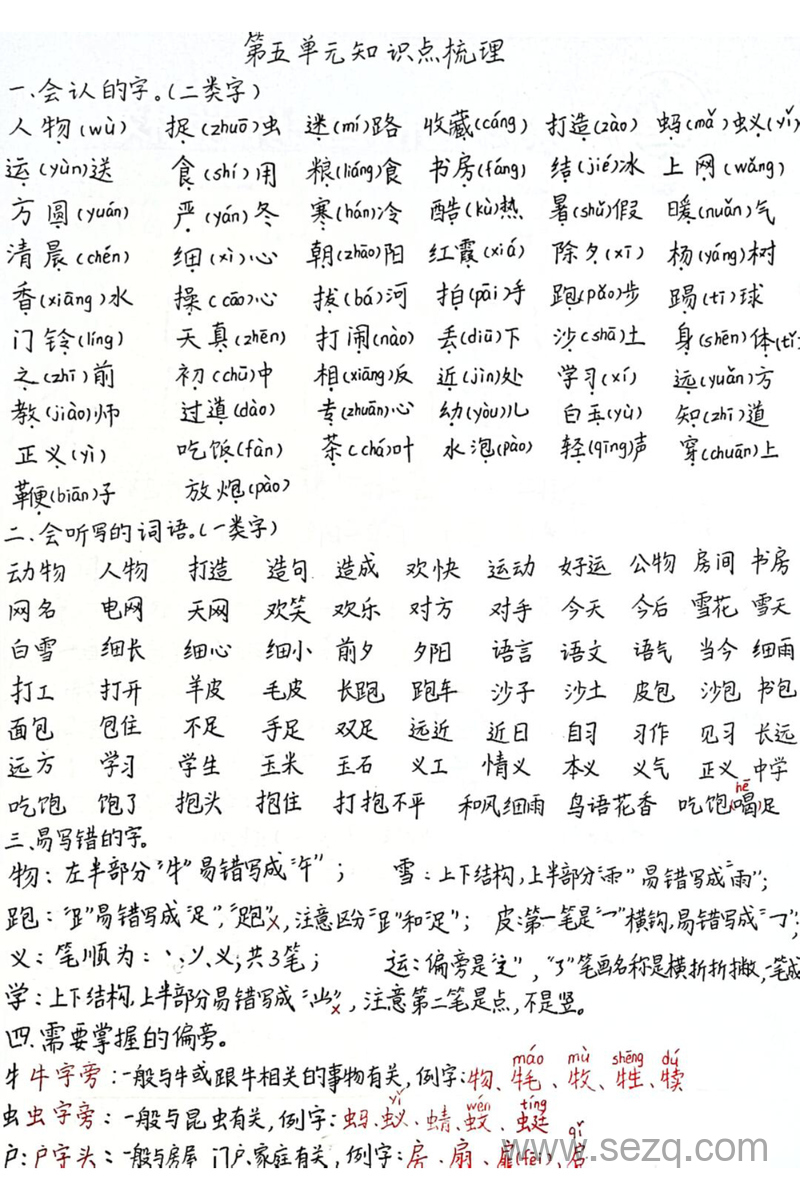 第五单元知识点梳理
一.会认的字。(二类字)
人物(wù) 捉(zhuō)虫 迷(mí)路 收藏(cáng) 打造(zào) 蚂(mǎ)蚁(yǐ)
运(yùn)送 食(shí)用 粮(liáng)食 书房(fáng) 结(jié)冰 上网(wǎng)
方圆(yuán) 严(yán)冬 寒(hán)冷 酷(kù)热 暑(shǔ)假 暖(nuǎn)气
清晨(chén) 细(xì)心 朝(zhāo)阳 红霞(xiá) 除夕(xī) 杨(yáng)树
香(xiāng)水 操(cāo)心 拔(bá)河 拍(pāi)手 跑(pǎo)步 踢(tī)球
门铃(líng) 天真(zhēn) 打闹(nào) 丢(diū)下 沙(shā)土 身(shēn)体(tǐ)
之(zhī)前 初(chū)中 相(xiāng)反 近(jìn)处 学习(xí) 远(yuǎn)方
教(jiào)师 过道(dào) 专(zhuān)心 幼(yòu)儿 白玉(yù) 知(zhī)道
正义(yì) 吃饭(fàn) 茶(chá)叶 水泡(pào) 轻(qīng)声 穿(chuān)上
鞭(biān)子 放炮(pào)
二.会听写的词语。(一类字)
动物 人物 打造 造句 造成 欢快 运动 好运 公物 房间 书房
网名 电网 天网 欢笑 欢乐 对方 对手 今天 今后 雪花 雪天
白雪 细长 细心 细小 前夕 夕阳 语言 语文 语气 当今 细雨
打工 打开 羊皮 毛皮 长跑 跑车 沙子 沙土 皮包 沙包 书包
面包 包住 不足 手足 双足 远近 近日 自习 习作 见习 长远
远方 学习 学生 玉米 玉石 义工 情义 本义 义气 正义 中学
吃饱 饱了 抱头 抱住 打抱不平 和风细雨 鸟语花香 吃饱喝(hē)足
三.易写错的字。
物:左半部分"牜"易错写成"午"; 雪:上下结构,上半部分"⻗"易错写成"雨";
跑:"𧾷"易错写成"足","跑"x,注意区分"𧾷"和"足"; 皮:第一笔是"乛"横钩,易错写成"㇆";
义:笔顺为:丶、乂、义;共3笔; 运:偏旁是"辶","㇋"笔画名称是横折折撇,一笔成
学:上下结构,上半部分易错写成"𭕄"x,注意第二笔是点,不是竖。
四.需要掌握的偏旁。
牜牛字旁:一般与牛或跟牛相关的事物有关,例字:物、牦(máo)、牧(mù)、牲(shēng)、犊(dú)
虫虫字旁:一般与昆虫有关,例字:蚂、蚁(yǐ)、蜻、蚊(wén)、蜓(tíng)
户:户字头:一般与房屋 门户、家庭有关,例字:房、扇、扉(fēi)、启(qǐ)
www.sezq.com